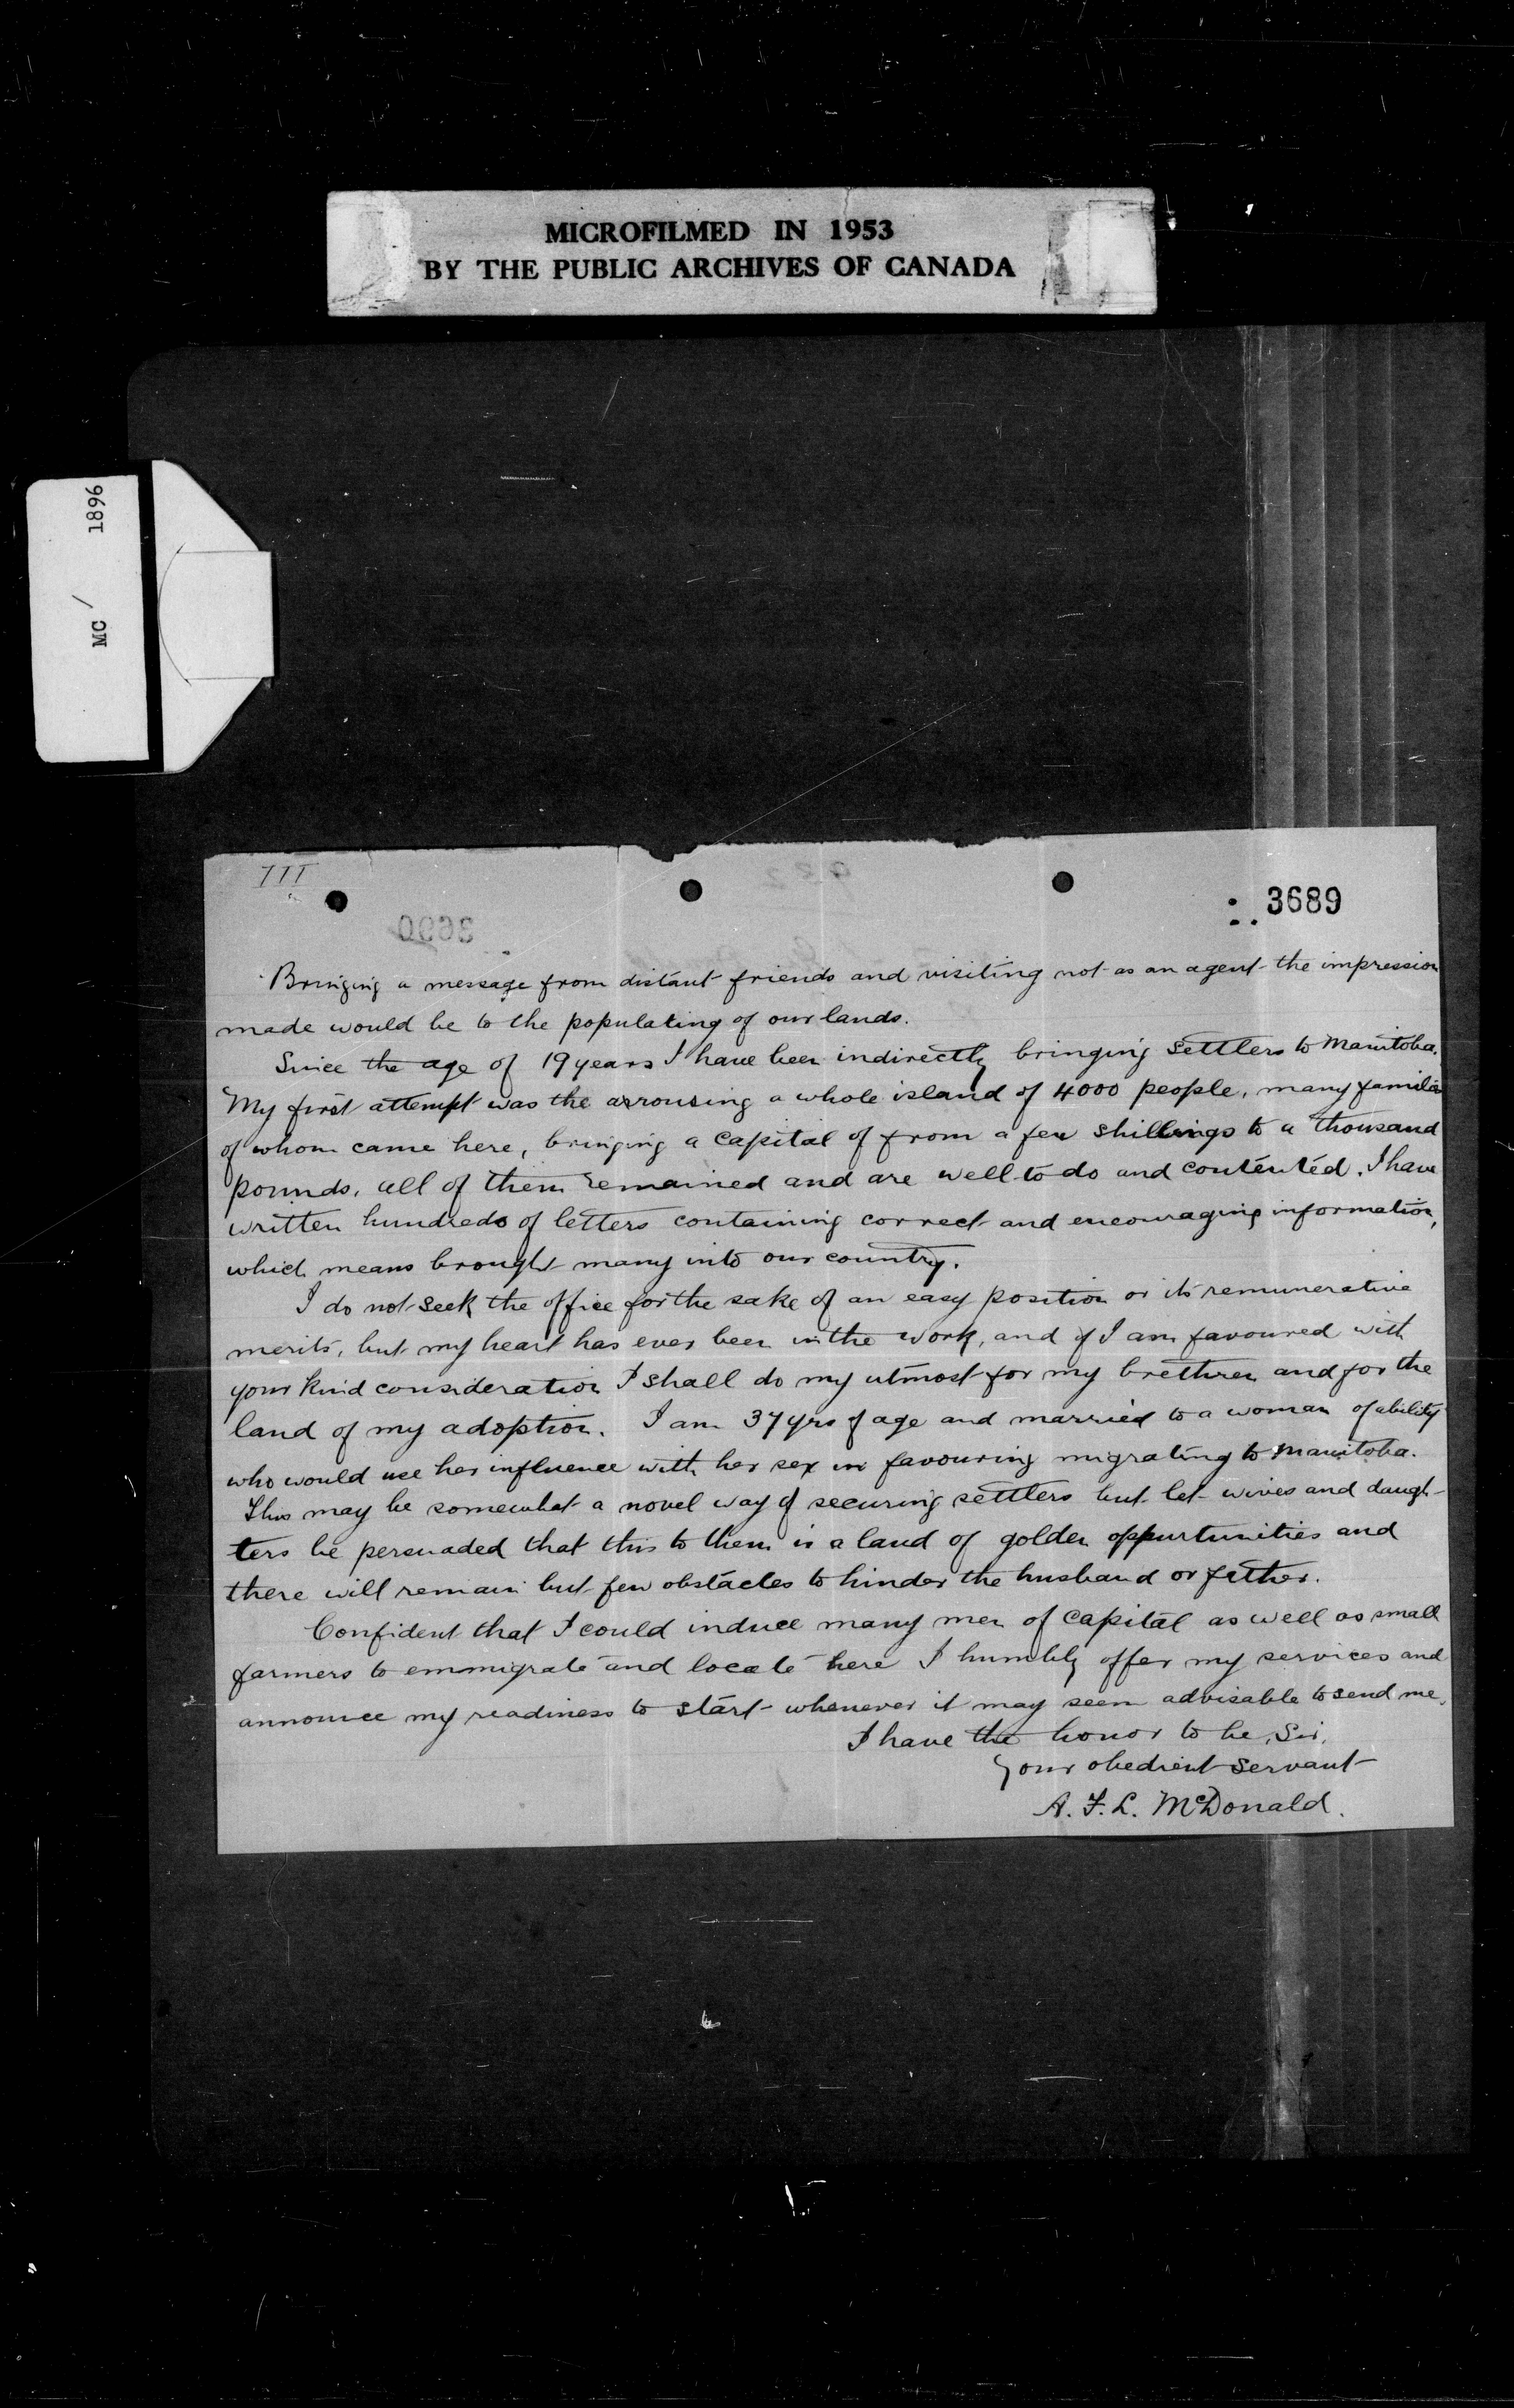 MICROFILMED IN 1953
BY THE PUBLIC ARCHIVES OF CANADA
MC / 1896
III
3689
Bringing a message from distant friends and visiting not as an agent the impression
made would be to the populating of our lands.
Since the age of 19 years I have been indirectly bringing settlers to Manitoba.
My first attempt was the arrousing a whole island of 4000 people, many families
of whom came here, bringing a capital of from a few shillings to a thousand
pounds, all of them remained and are well to do and contented. I have
written hundreds of letters containing correct and encouraging information,
which means brought many into our country.
I do not seek the office for the sake of an easy position or its remunerative
merits, but my heart has ever been in the work, and if I am favoured with
your kind consideration I shall do my utmost for my brethren and for the
land of my adoption. I am 37 yrs of age and married to a woman of ability
who would use her influence with her sex in favouring migrating to Manitoba.
This may be somewhat a novel way of securing settlers but let wives and daugh-
ters be persuaded that this to them is a land of golden oppurtunities and
there will remain but few obstacles to hinder the husband or father.
Confident that I could induce many men of capital as well as small
farmers to emmigrate and locate here I humbly offer my services and
announce my readiness to start whenever it may seem advisable to send me.
I have the honor to be, Sir,
Your obedient servant
A. F. L. McDonald.